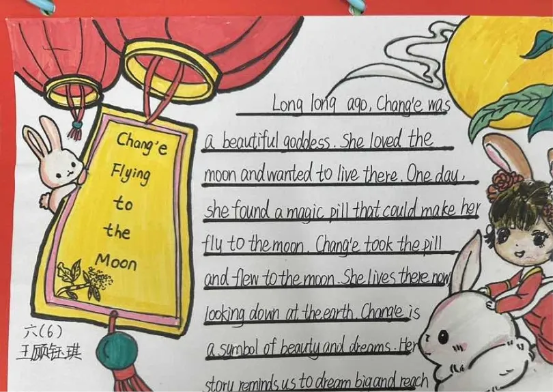 Chang'e
Flying
to
the
Moon
六(6)
Long long ago, Chang'e was
a beautiful goddess. She loved the
moon and wanted to live there. One day,
she found a magic pill that could make her
fly to the moon. Chang'e took the pill
and flew to the moon. She lives there now
looking down at the earth. Chang'e is
a symbol of beauty and dreams. Her
story reminds us to dream big and reach